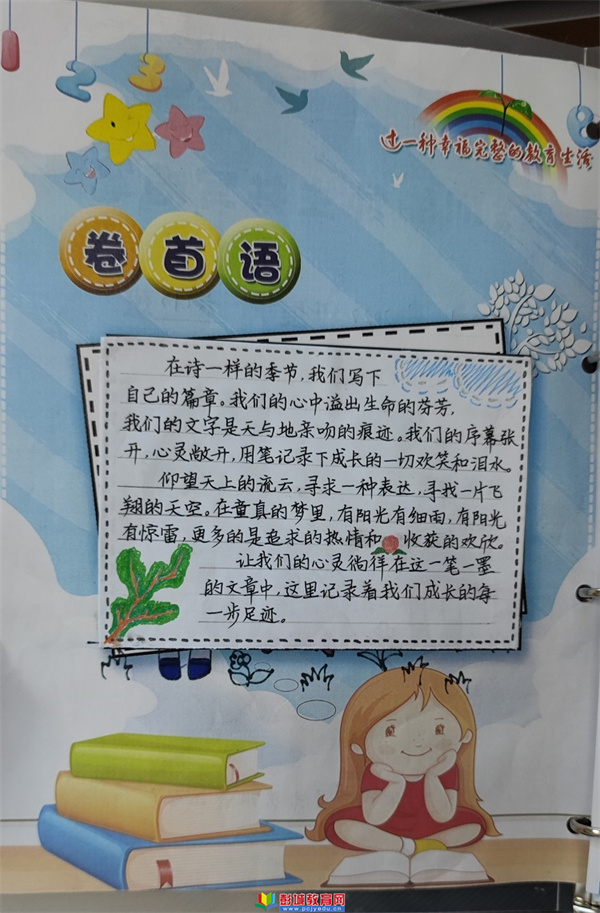 1 2 3 8
过一种幸福完整的教育生活
卷首语
在诗一样的季节,我们写下
自己的篇章。我们的心中溢出生命的芬芳,
我们的文字是天与地亲吻的痕迹。我们的序幕张
开,心灵敞开,用笔记录下成长的一切欢笑和泪水。
仰望天上的流云,寻求一种表达,寻找一片飞
翔的天空。在童真的梦里,有阳光有细雨,有阳光
有惊雷,更多的是追求的热情和收获的欢欣。
让我们的心灵徜徉在这一笔一墨
的文章中,这里记录着我们成长的每
一步足迹。
彭城教育网
www.pcjyedu.cn